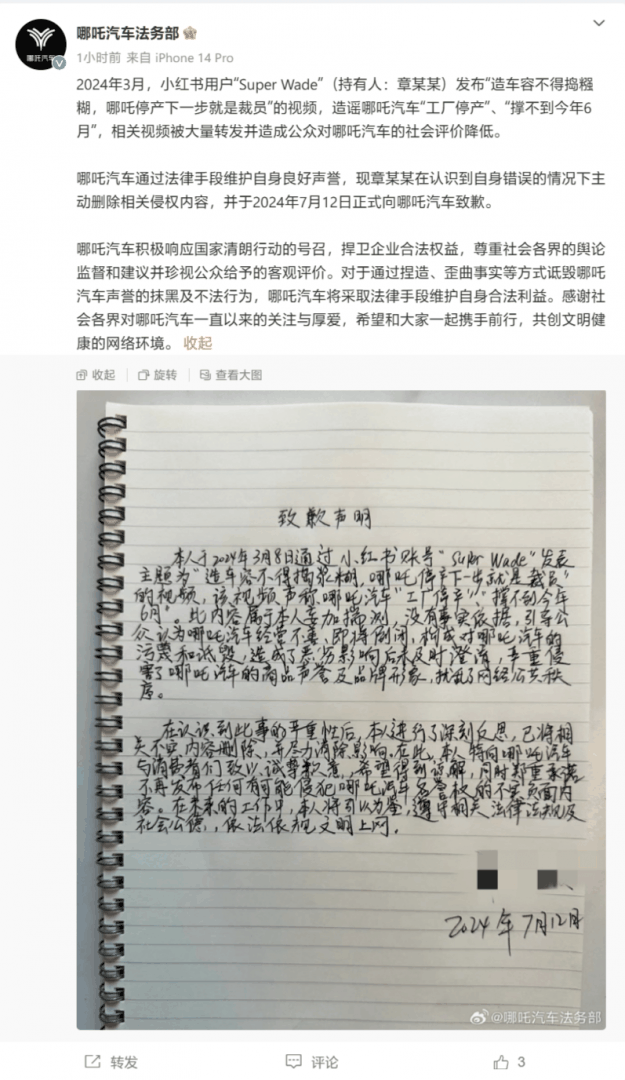 哪吒汽车法务部
1小时前 来自 iPhone 14 Pro
2024年3月，小红书用户“Super Wade”（持有人：章某某）发布“造车容不得捣糨
糊，哪吒停产下一步就是裁员”的视频，造谣哪吒汽车“工厂停产”、“撑不到今年6
月”，相关视频被大量转发并造成公众对哪吒汽车的社会评价降低。
哪吒汽车通过法律手段维护自身良好声誉，现章某某在认识到自身错误的情况下主
动删除相关侵权内容，并于2024年7月12日正式向哪吒汽车致歉。
哪吒汽车积极响应国家清朗行动的号召，捍卫企业合法权益，尊重社会各界的舆论
监督和建议并珍视公众给予的客观评价。对于通过捏造、歪曲事实等方式诋毁哪吒
汽车声誉的抹黑及不法行为，哪吒汽车将采取法律手段维护自身合法利益。感谢社
会各界对哪吒汽车一直以来的关注与厚爱，希望和大家一起携手前行，共创文明健
康的网络环境。 收起
收起 旋转 查看大图
致歉声明
本人于2024年3月8日通过小红书账号“Super Wade”发表
主题为“造车容不得捣浆糊，哪吒停产下一步就是裁员”
的视频，该视频声称哪吒汽车“工厂停产”、“撑不到今年
6月”。此内容属于本人妄加揣测，没有事实依据，引导公
众认为哪吒汽车经营不善、即将倒闭，构成对哪吒汽车的
污蔑和诋毁，造成了恶劣影响后未及时澄清，严重侵
害了哪吒汽车的商品声誉及品牌形象，扰乱了网络公共秩
序。
在认识到此事的严重性后，本人进行了深刻反思，已将相
关不实内容删除，并尽力消除影响。在此，本人特向哪吒汽车
与消费者们致以诚挚歉意，希望得到谅解，同时郑重承诺
不再发布任何有可能侵犯哪吒汽车名誉权的不实负面内
容。在未来的工作中，本人将引以为鉴，遵守相关法律法规及
社会公德，依法依规文明上网。
2024年7月12日
@哪吒汽车法务部
转发 评论 3